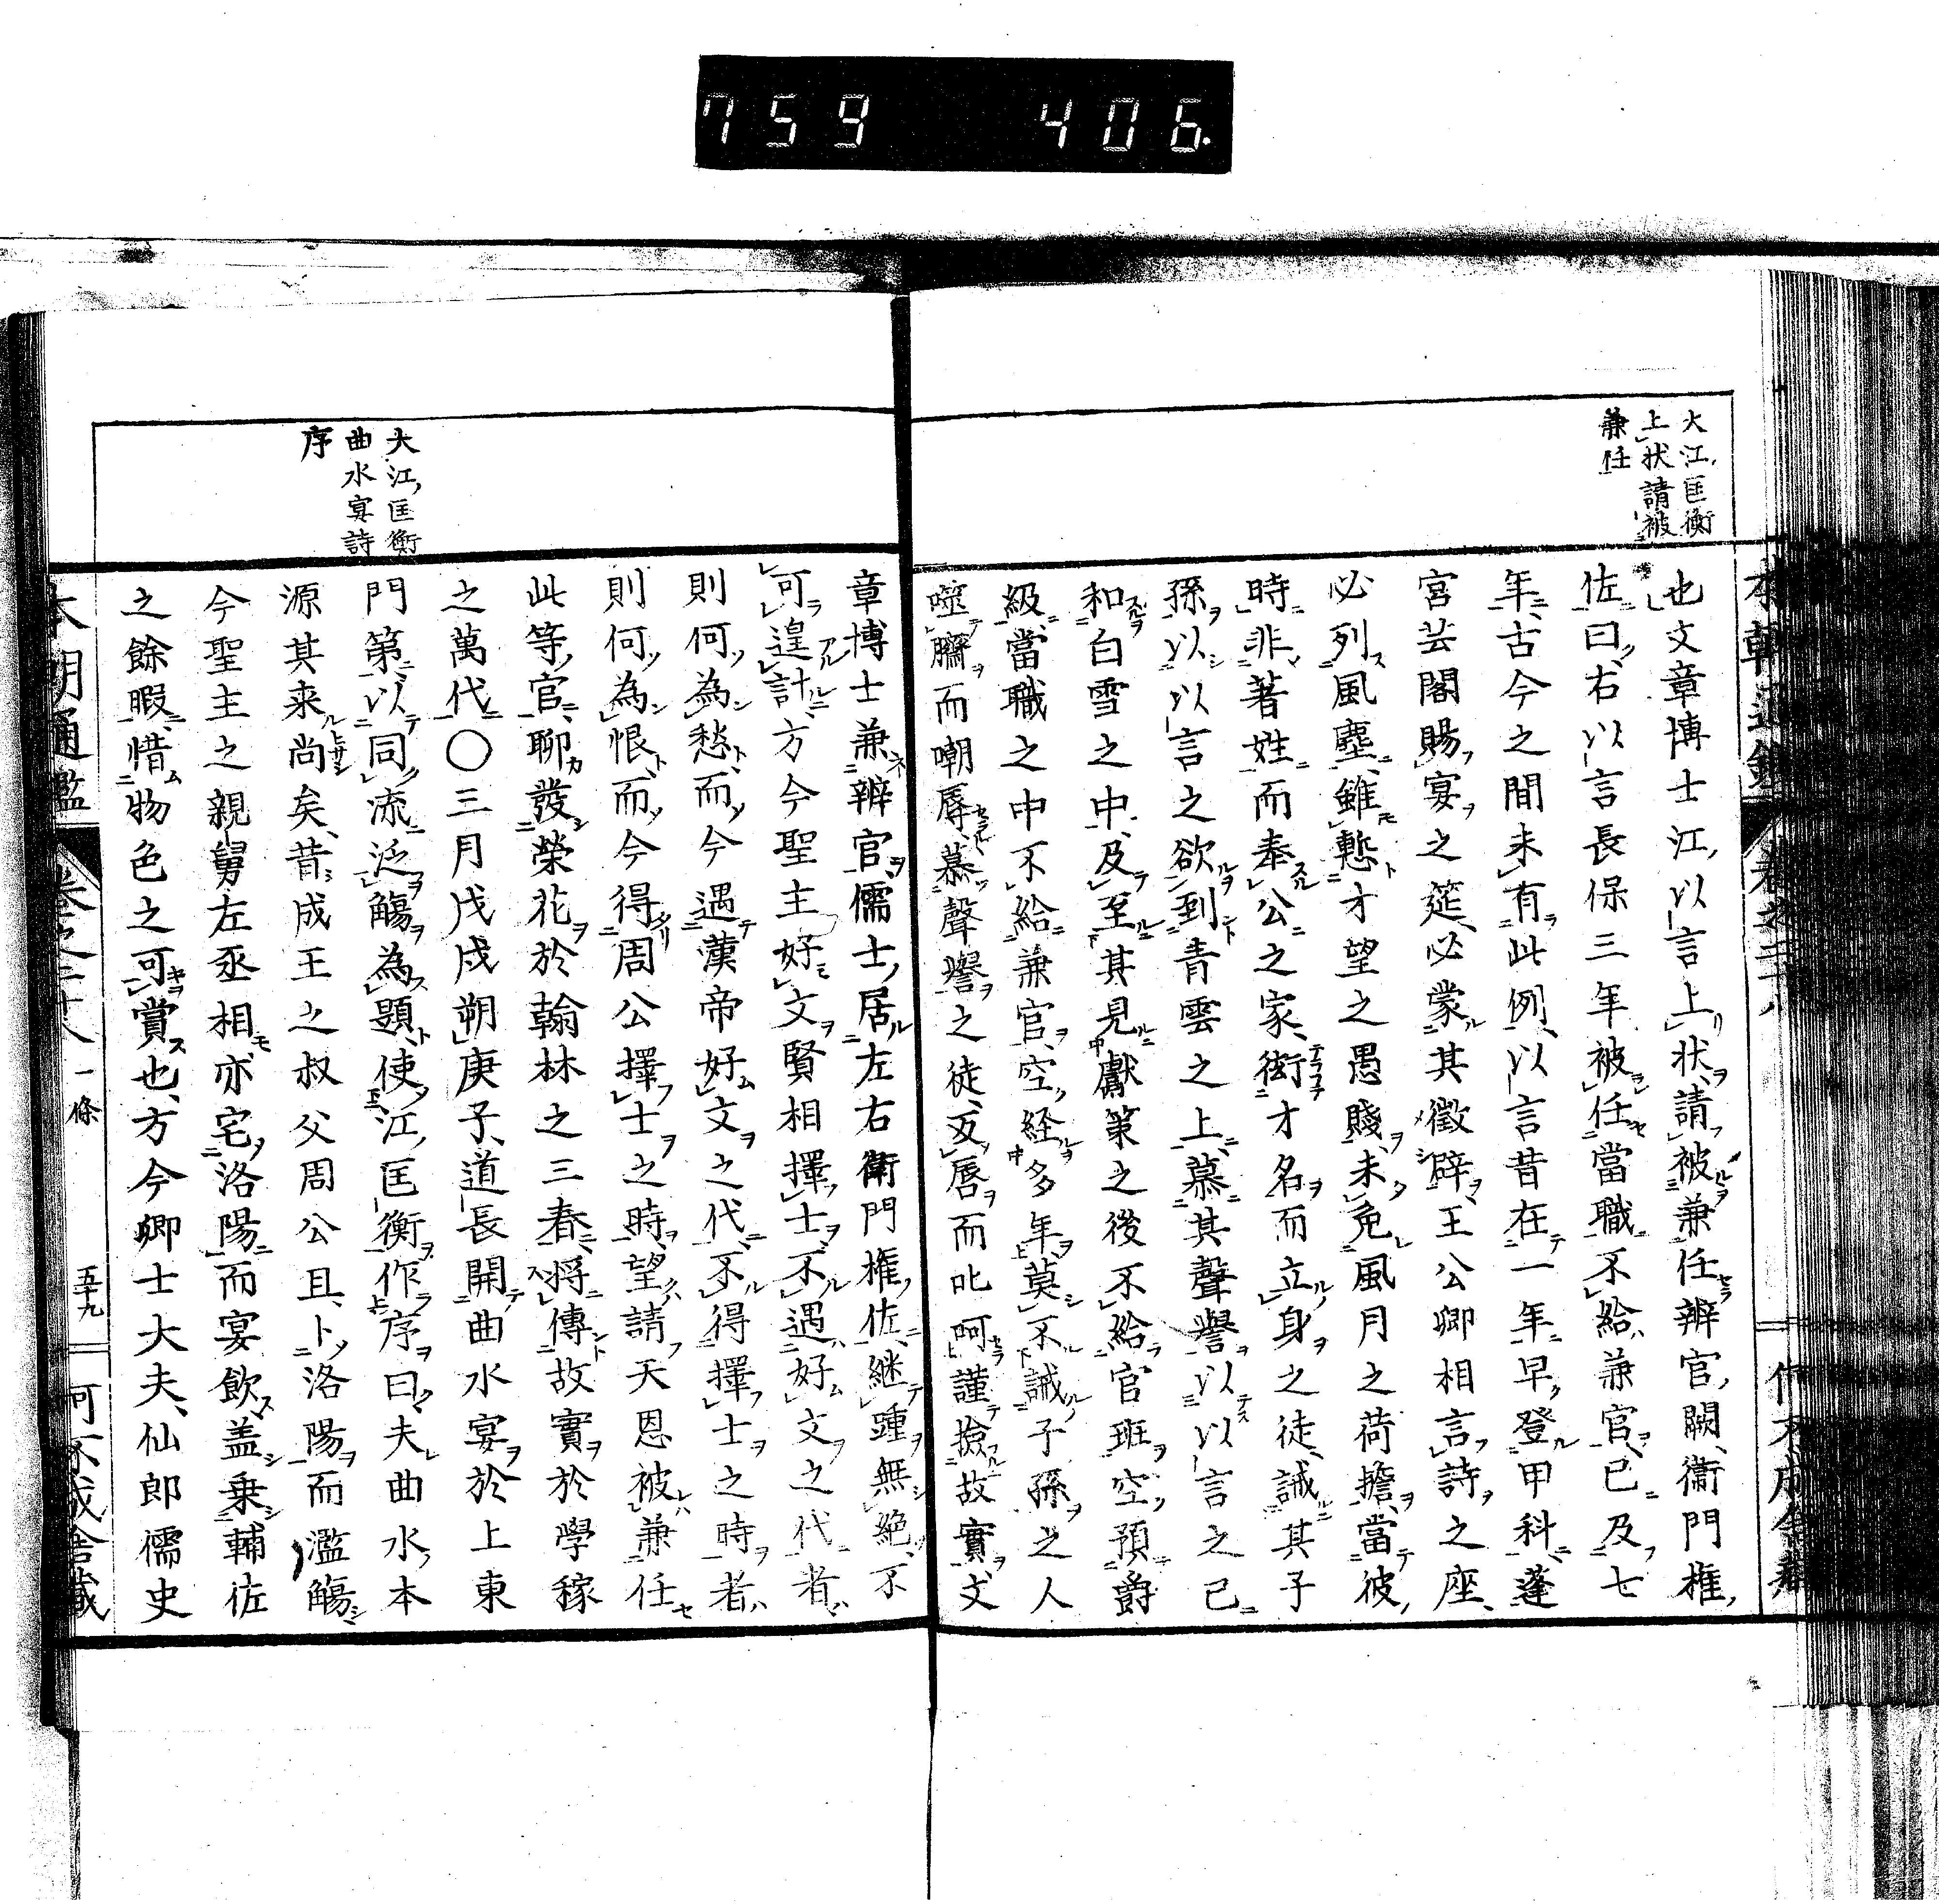 759 406.
大江匡衡
上状請被
兼任
也文章博士江以言上状請被兼任辨官闕衞門権
佐曰右以言長保三年被任當職不給兼官已及七
年古今之間未有此例以言昔在一年早登甲科蓬
宮芸閣賜宴之筵必蒙其徴辟王公卿相言詩之座
必列風塵雖慙才望之愚賤未免風月之荷擔當彼
時非著姓而奉公之家衒才名而立身之徒誡其子
孫以以言之欲到青雲之上慕其聲譽以以言之已
和白雪之中及至其見獻策之後不給官班空預爵
級當職之中不給兼官空経多年莫不誡子孫之人
噬臍而嘲辱慕聲譽之徒反唇而叱呵謹撿故實文
章博士兼辨官儒士居左右衞門権佐継踵無絶不
可遑計方今聖主好文賢相擇士不遇好文之代者
則何為愁而今遇漢帝好文之代不得擇士之時者
則何為恨而今得周公擇士之時望請天恩被兼任
此等官聊發榮花於翰林之三春将傳故實於學稼
之萬代〇三月戊戌朔庚子道長開曲水宴於上東
門第以同流泛觴為題使江匡衡作序曰夫曲水本
源其来尚矣昔成王之叔父周公且卜洛陽而濫觴
今聖主之親舅左丞相亦宅洛陽而宴飲盖乗輔佐
之餘暇惜物色之可賞也方今卿士大夫仙郎儒史
大江匡衡
曲水宴詩
序
本朝通鑑 卷之二十八 一條 五十九